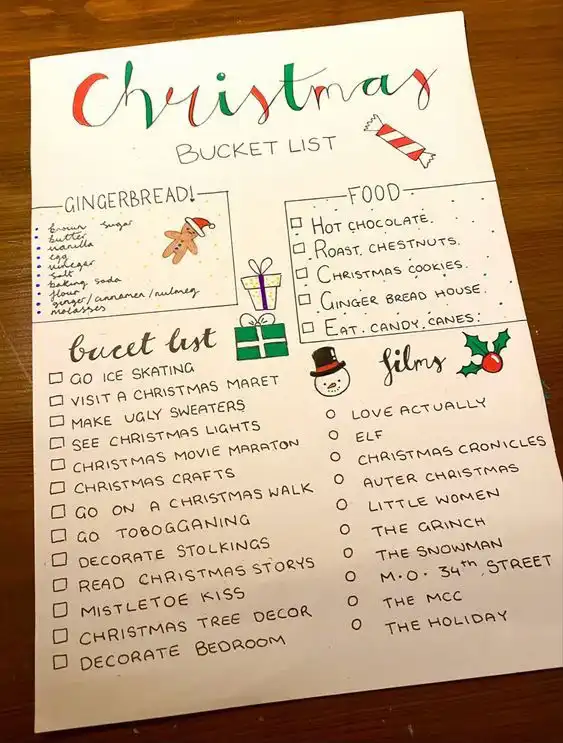 Christmas
BUCKET LIST
GINGERBREAD!
brown sugar
butter
vanilla
egg
vinegar
salt
baking soda
flour
ginger/cinnamen/nutmeg
molasses
FOOD
HOT CHOCOLATE.
ROAST. CHESTNUTS.
CHRISTMAS COOKIES.
GINGER BREAD HOUSE.
EAT. CANDY. CANES.
bucet list
GO ICE SKATING
VISIT A CHRISTMAS MARET
MAKE UGLY SWEATERS
SEE CHRISTMAS LIGHTS
CHRISTMAS MOVIE MARATON
CHRISTMAS CRAFTS
GO ON A CHRISTMAS WALK
GO TOBOGGANING
DECORATE STOLKINGS
READ CHRISTMAS STORYS
MISTLETOE KISS
CHRISTMAS TREE DECOR
DECORATE BEDROOM
films
LOVE ACTUALLY
ELF
CHRISTMAS CRONICLES
AUTER CHRISTMAS
LITTLE WOMEN
THE GRINCH
THE SNOWMAN
M.O. 34th STREET
THE MCC
THE HOLIDAY